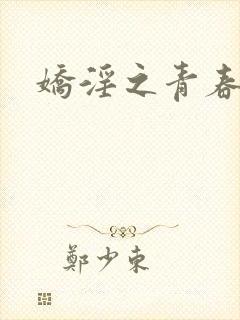 嬌淫之青春
鄭少東